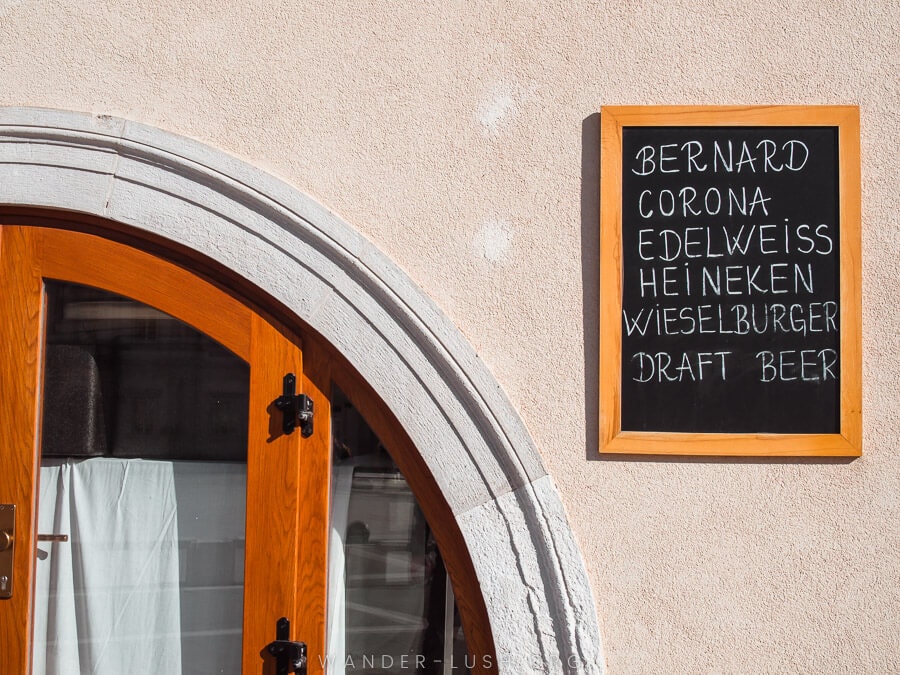 BERNARD
CORONA
EDELWEISS
HEINEKEN
WIESELBURGER
DRAFT BEER